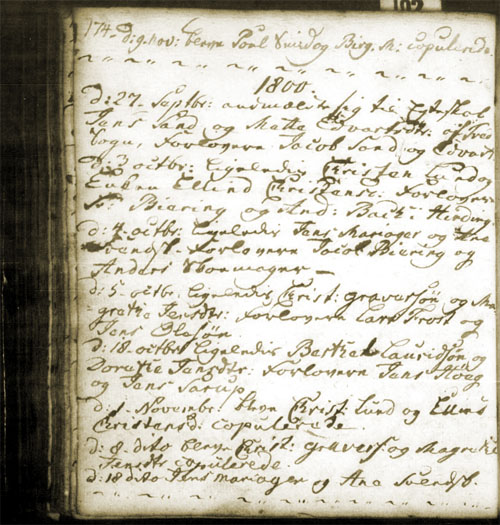 102
174
d: 9. Nov: bleve Poul Smed og Birg. M: copulerede
1800.
d: 27. Septbr: anmældte sig til Ecteskab
Jens Sand og Mette Edvartsdtr: af
Sogn, Forlovere Jacob Sand og Edvart
d: 3 octbr: ligeledis Christen Lund og
Enken Ellind Christensd: Forlovere
Biering og And: Bach i Hinding
d: 4. octbr: ligeledis Jens Mariager og Ane
Svendsd. Forlovere Jacob Biering og
Anders Skoemager
d: 5. octbr. ligeledis Christ: graversøn og Ma
grethe Jensdtr: Forlovere Lars Frost og
Jens Olesøn
d: 18. octbr ligeledis Berthel Lauridsøn og
Dorethe Jensdtr: Forlovere Jens Höeg
og Jens Sarup
d: 1. Novembr: bleve Christ: Lund og
Christensd: copulerede
d: 8. dito bleve Christ: gravers: og Magrethe
Jensdtr copulerede.
d: 18 dito Jens mariager og Ane Svendsd.